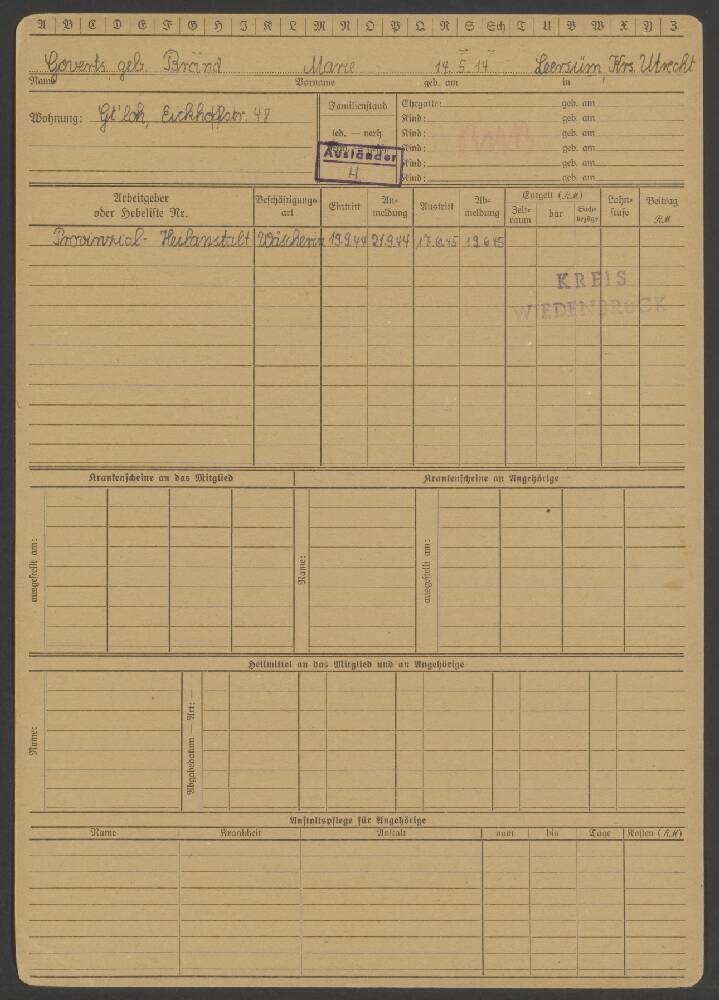 A B C D E F G H I J K L M N O P Q R S Sch T U V W X Y Z
Goverts geb. Brand Marie 14. 5. 14 Leersum, Krs. Utrecht
Name Vorname geb. am in
Wohnung: Gt'loh, Eickhoffstr. 48
Familienstand
led. — verh.
Ausländer
H.
Ehegatte: geb. am
Kind: geb. am
Kind: geb. am
Kind: geb. am
Kind: geb. am
Kind: geb. am
Arbeitgeber oder Hebeliste Nr. Beschäftigungsart Eintritt Anmeldung Austritt Abmeldung Entgelt (RM) Zeitraum bar Sachbezüge Lohnstufe Beitrag RM
Provinzial-Heilanstalt Wäscherin 19.9.44 21.9.44 17.6.45 19.6.45
KREIS
WIEDENBRÜCK
Krankenscheine an das Mitglied Krankenscheine an Angehörige
ausgestellt am: Name: ausgestellt am:
Heilmittel an das Mitglied und an Angehörige
Name: Abgabedatum — Art: —
Anstaltspflege für Angehörige
Name Krankheit Anstalt vom bis Tage Kosten (RM)